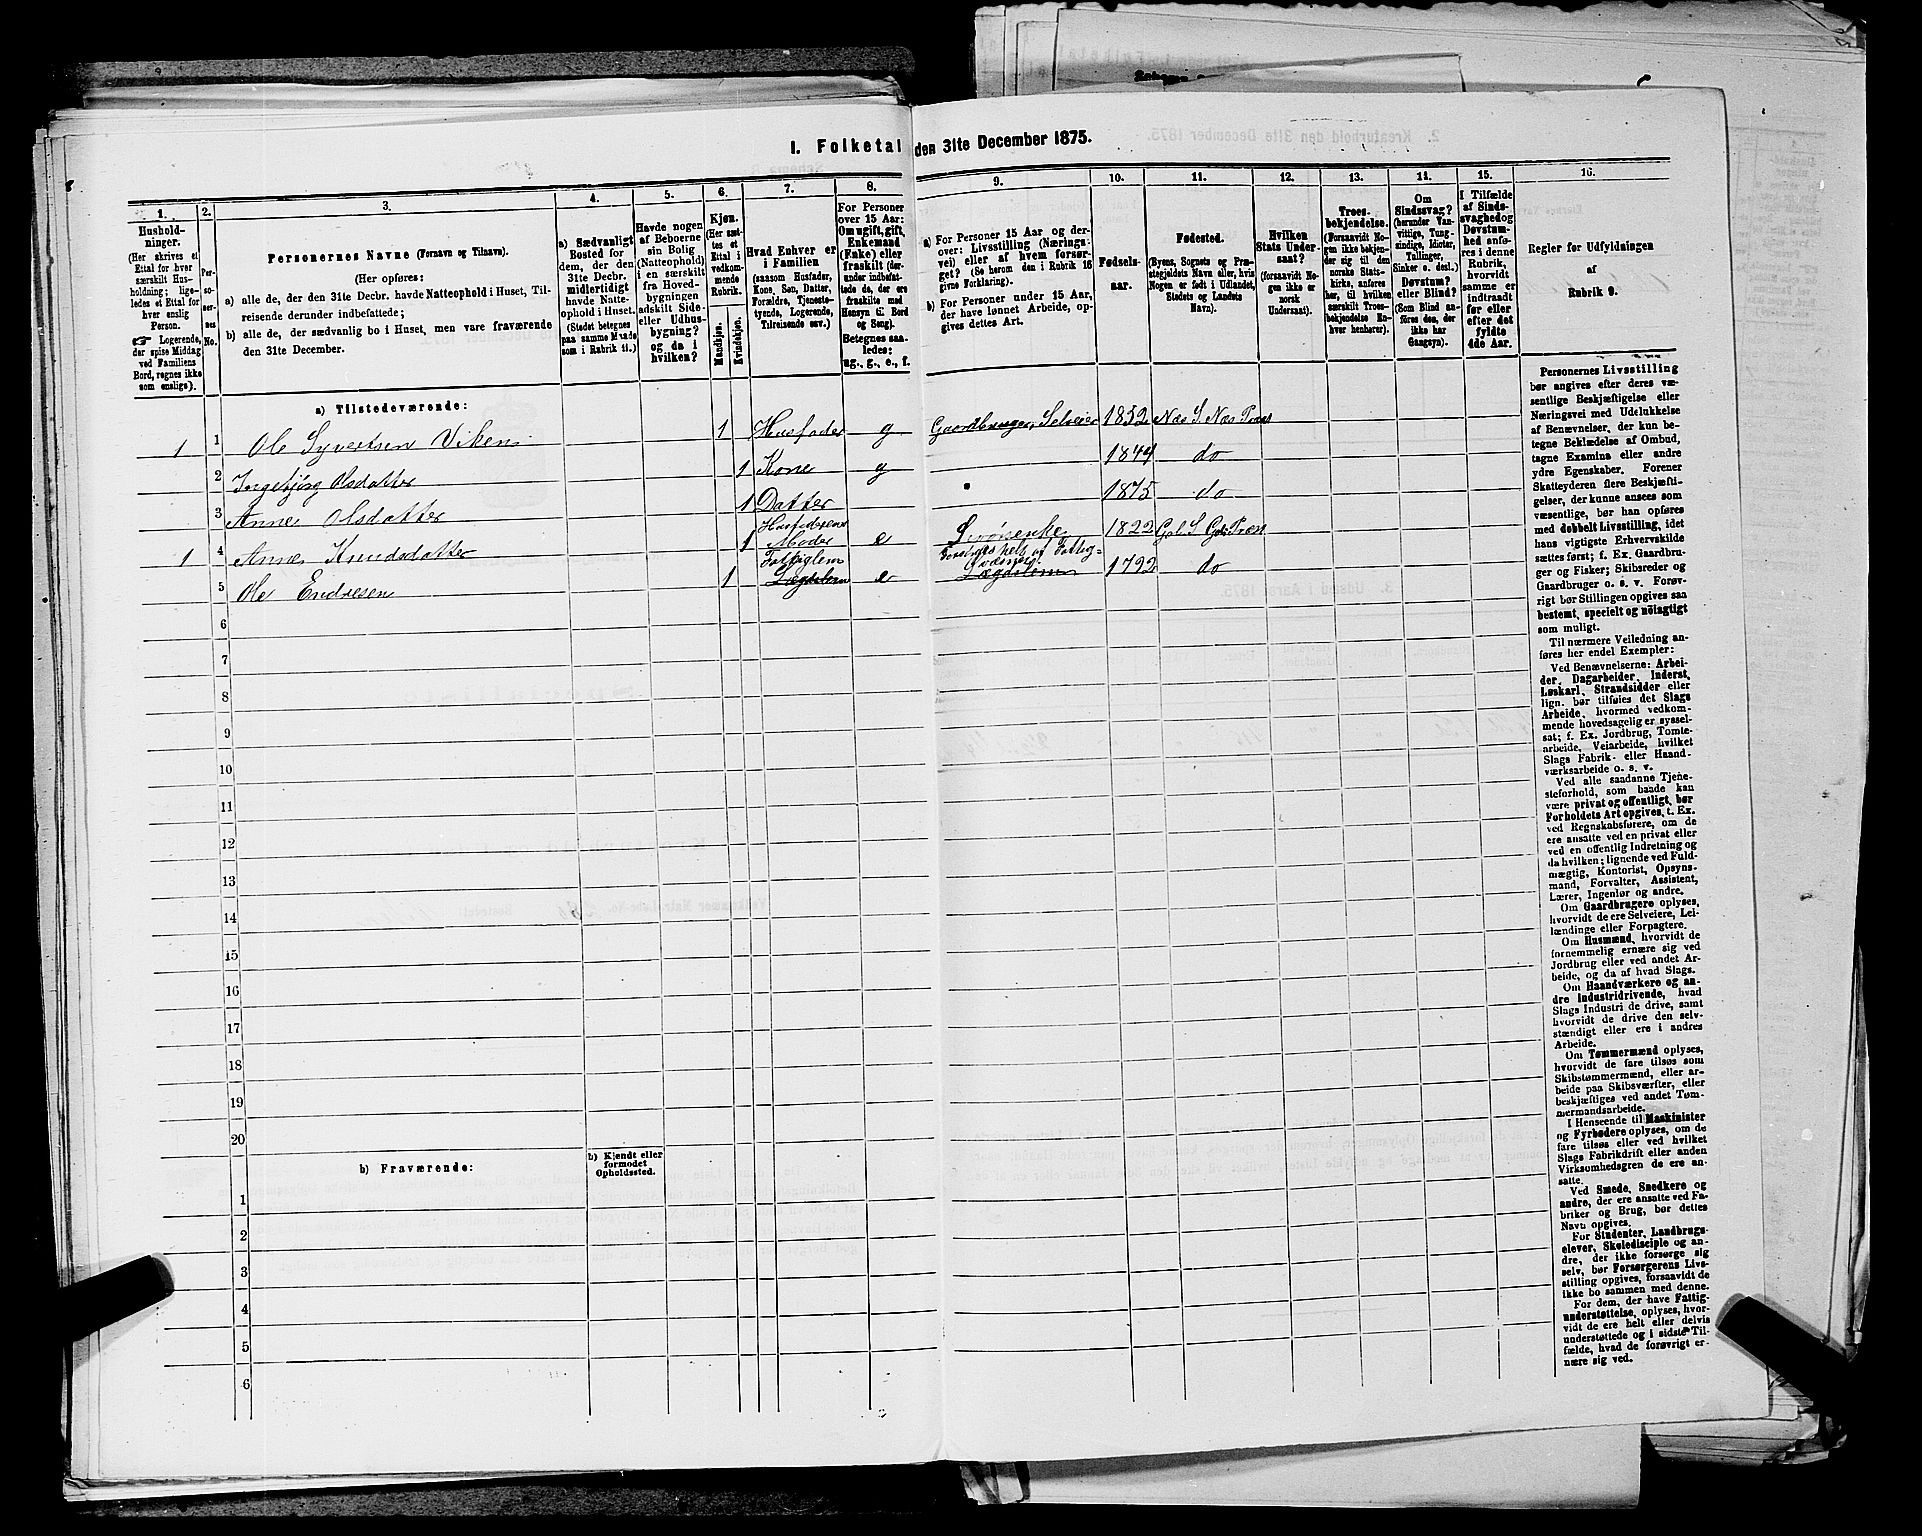 I. Folketal den 31te December 1875.
1.
2.
3.
4.
5.
6.
7.
8.
9.
10.
11.
12.
13.
14.
15.
16.
Hushold-
ninger.
(Her skrives et
Ettal for hver
særskilt Hus-
holdning; lige-
ledes et Ettal for
hver enslig
Person.
☞ Logerende,
der spise Middag
ved Familiens
Bord, regnes ikke
som enslige).
Per-
so-
ner-
nes
No.
Personernes Navne (Fornavn og Tilnavn).
(Her opføres:
a) alle de, der den 31te Decbr. havde Natteophold i Huset, Til-
reisende derunder indbefattede;
b) alle de, der sædvanlig bo i Huset, men vare fraværende
den 31te December.
a) Sædvanligt
Bosted for
dem, der den
31te Decbr.
midlertidigt
havde Natte-
ophold i Huset.
(Stedet betegnes
paa samme Maade
som i Rubrik 11.)
Havde nogen
af Beboerne
sin Bolig
(Natteophold)
i en særskilt
fra Hoved-
bygningen
adskilt Side-
eller Udhus-
bygning?
og da i
hvilken?
Kjøn.
(Her sæt-
tes et
Ettal i
vedkom-
mende
Rubrik.)
Mandkjøn.
Kvindekjøn.
Hvad Enhver er
i Familien
(saasom Husfader,
Kone, Søn, Datter,
Forældre, Tjeneste-
tyende, Logerende,
Tilreisende osv.)
For Personer
over 15 Aar:
Om ugift, gift,
Enkemand
(Enke) eller
fraskilt (der-
under indbefat-
tede de, der ere
fraskilte med
Hensyn til Bord
og Seng).
Betegnes saa-
ledes:
ug., g., e., f.
a) For Personer 15 Aar og der-
over: Livsstilling (Nærings-
vei) eller af hvem forsør-
get? (Se herom den i Rubrik 16
givne Forklaring).
b) For Personer under 15 Aar,
der have lønnet Arbeide, op-
gives dettes Art.
Fødsels-
aar.
Fødested.
(Byens, Sognets og Præ-
stegjeldets Navn eller, hvis
Nogen er født i Udlandet,
Stedets og Landets
Navn).
Hvilken
Stats Under-
saat?
(forsaavidt No-
gen ikke er
norsk
Undersaat).
Troes-
bekjendelse.
(Forsaavidt No-
gen ikke bekjen-
der sig til den
norske Stats-
kirke, anføres
her, til hvilken
særskilt Troes-
bekjendelse En-
hver henhører).
Om
Sindssvag?
(herunder Van-
vittige, Tung-
sindige, Idioter,
Tullinger,
Sinker o. desl.)
Døvstum?
eller Blind?
(Som Blind an-
føres den, der
ikke har
Gangsyn).
I Tilfælde
af Sinds-
svaghed og
Døvstum-
hed anfø-
res i denne
Rubrik,
hvorvidt
samme er
indtraadt
før eller
efter det
fyldte
4de Aar.
Regler for Udfyldningen
af
Rubrik 9.
a) Tilstedeværende:
1 1 Ole Syvertsen Viken 1 Husfader g Gaardbruger, Selveier 1852 Næs S. Næs Præst
2 Ingebjørg Olsdatter 1 Kone g 1849 do
3 Anne Olsdatter 1 Datter 1875 do
1 4 Anne Knudsdatter 1 Husfaderens Moder e 1822 Gol S. Gol Præst
5 Ole Endresen 1 Fattiglem Lægdslem e Forsørges helt af Fattig-
væsenet Lægdslem 1792 do
6
7
8
9
10
11
12
13
14
15
16
17
18
19
20
b) Fraværende:
b) Kjendt eller
formodet
Opholdssted.
1
2
3
4
5
6
Personernes Livsstilling
bør angives efter deres væ-
sentlige Beskjæftigelse eller
Næringsvei med Udelukkelse
af Benævnelser, der kun be-
tegne Beklædelse af Ombud,
tagne Examina eller andre
ydre Egenskaber. Forener
Skatteyderen flere Beskjæfti-
gelser, der kunne ansees som
væsentlige, bør han opføres
med dobbelt Livsstilling, idet
hans vigtigste Erhvervskilde
sættes først; f. Ex. Gaardbru-
ger og Fisker; Skibsreder og
Gaardbruger o. s. v. Forøv-
rigt bør Stillingen opgives saa
bestemt, specielt og nöiagtigt
som muligt.
Til nærmere Veiledning an-
føres her endel Exempler:
Ved Benævnelserne: Arbei-
der, Dagarbeider, Inderst,
Løskarl, Strandsidder eller
lign. bør tilføies det Slags
Arbeide, hvormed vedkom-
mende hovedsagelig er syssel-
sat; f. Ex. Jordbrug, Tomte-
arbeide, Veiarbeide, hvilket
Slags Fabrik- eller Haand-
værksarbeide o. s. v.
Ved alle saadanne Tjene-
steforhold, som baade kan
være privat og offentligt, bør
Forholdets Art opgives, t. Ex.
ved Regnskabsførere, om de
ere ansatte ved en privat eller
ved en offentlig Indretning og
da hvilken; lignende ved Fuld-
mægtig, Kontorist, Opsyns-
mand, Forvalter, Assistent,
Lærer, Ingeniør og andre.
Om Gaardbrugere oplyses,
hvorvidt de ere Selveiere, Lei-
lændinge eller Forpagtere.
Om Husmænd, hvorvidt de
fornemmelig ernære sig ved
Jordbrug eller ved andet Ar-
beide, og da af hvad Slags.
Om Haandværkere og an-
dre Industridrivende, hvad
Slags Industri de drive, samt
hvorvidt de drive den selv-
stændigt eller ere i andres
Arbeide.
Om Tømmermænd oplyses,
hvorvidt de fare tilsøs som
Skibstømmermænd, eller ar-
beide paa Skibsværfter, eller
beskjæftiges ved andet Tøm-
mermandsarbeide.
I Henseende til Maskinister
og Fyrbødere oplyses, om de
fare tilsøs eller ved hvilket
Slags Fabrikdrift eller anden
Virksomhedsgren de ere an-
satte.
Ved Smede, Snedkere og
andre, der ere ansatte ved Fa-
briker og Brug, bør dettes
Navn opgives.
For Studenter, Landbrugs-
elever, Skoledisciple og an-
dre, der ikke forsørge sig
selv, bør Forsørgerens Livs-
stilling opgives, forsaavidt de
ikke bo sammen med denne.
For dem, der have Fattig-
understøttelse, oplyses, hvor-
vidt de ere helt eller delvis
understøttede og i sidste Til-
fælde, hvad de forøvrigt er-
nære sig ved.